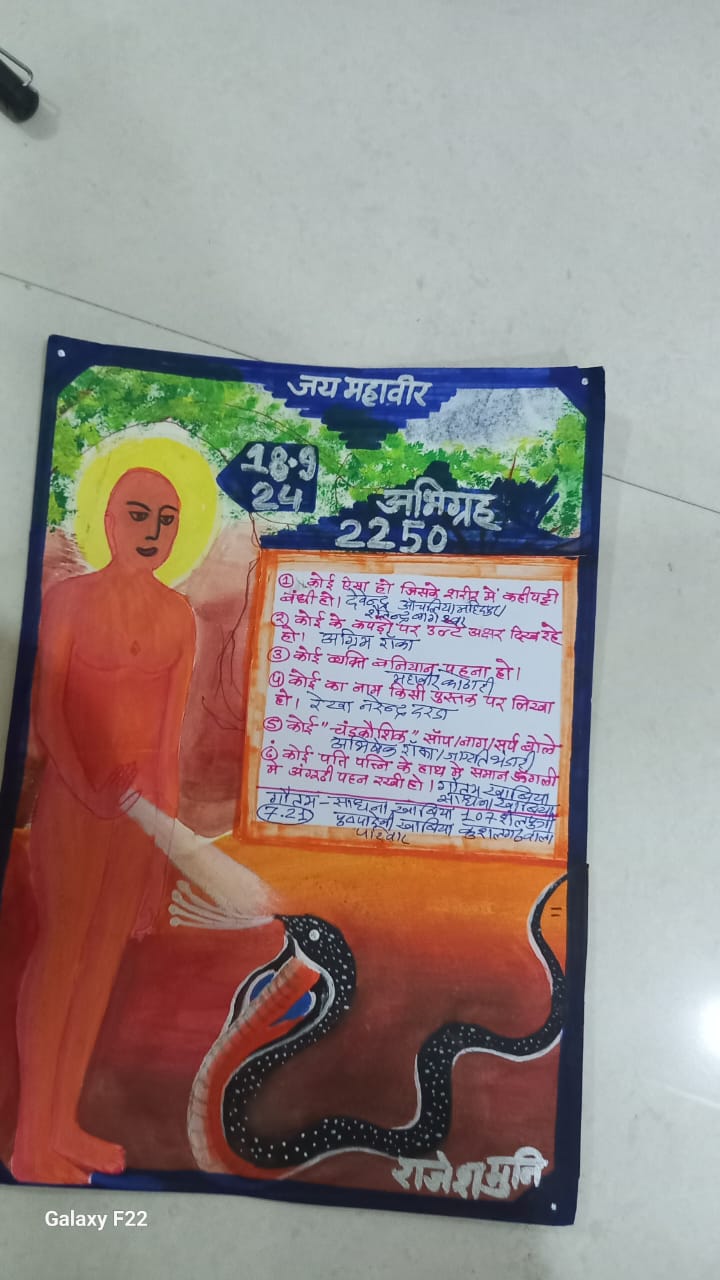 जय महावीर
18.9
24
अभिग्रह
2250
① कोई ऐसा हो जिसके शरीर में कहीं पट्टी
बंधी हो। देवेन्द्र
② कोई के कपड़ो पर उल्टे अक्षर दिख रहे
हो। अग्रिम रांका
③ कोई व्यक्ति बनियान पहना हो।
महावीर
④ कोई का नाम किसी पुस्तक पर लिखा
हो। रेखा नरेन्द्र दरडा
⑤ कोई "चंडकौशिक" साँप/नाग/सर्प बोले
अभिषेक रांका/
६ कोई पति पत्नि के हाथ में समान ऊंगली
में अंगूठी पहन रखी हो। गौतम खाबिया
साधना खाबिया
गौतम - साधना खाबिया 107
7.21 खाबिया कुशलगढवाला
परिवार
राजेश मुनि
Galaxy F22